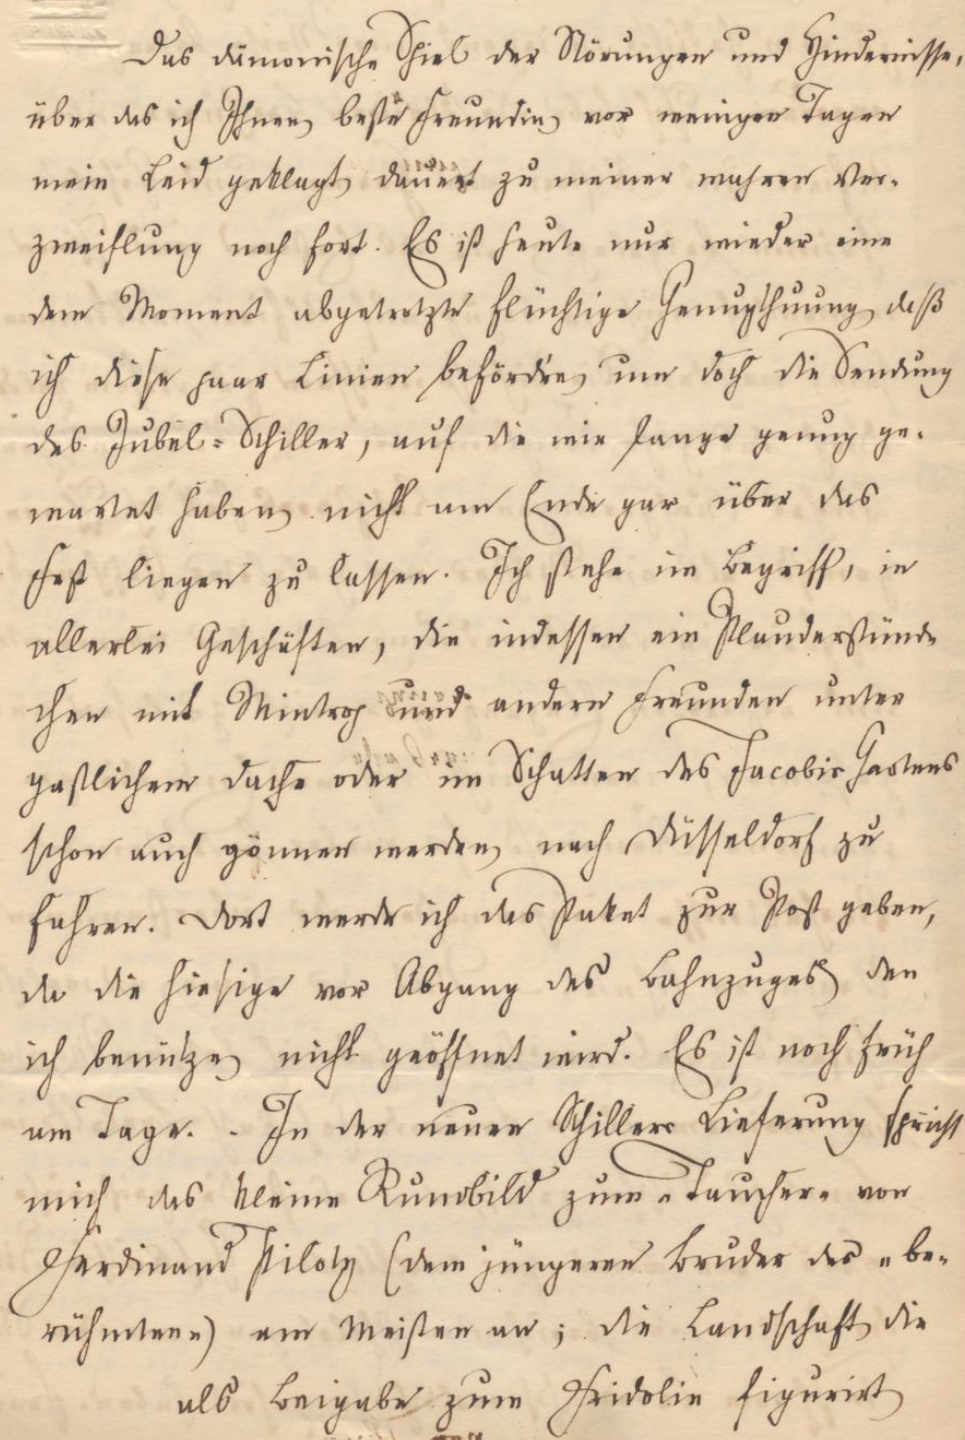 Das dämonische Spiel der Störungen und Hindernisse,
über das ich Ihnen, beste Freundin, vor wenigen Tagen
mein Leid geklagt, dauert zu meiner wahren Ver-
zweiflung noch fort. Es ist heute nur wieder eine
dem Moment abgetrotzte flüchtige Genugthuung, daß
ich diese paar Linien befördre, um doch die Sendung
des Jubel-Schiller, auf die wir lange genug ge-
wartet haben, nicht am Ende gar über das
Fest liegen zu lassen. Ich stehe im Begriff, in
allerlei Geschäften, die indessen ein Plauderstünd-
chen mit Mintrop und andern Freunden unter
gastlichem Dache oder im Schatten des Jacobi Gartens
schon auch gönnen werden, nach Düsseldorf zu
fahren. Dort werde ich das Paket zur Post geben,
da die hiesige vor Abgang des Bahnzuges, den
ich benütze, nicht geöffnet wird. Es ist noch früh
am Tage. - In der neuen Schiller Lieferung spricht
mich das kleine Rundbild zum "Taucher" von
Ferdinand Piloty (dem jüngeren Bruder des "be-
rühmten") am Meisten an; die Landschaft, die
als Beigabe zum Fridolin figurirt,